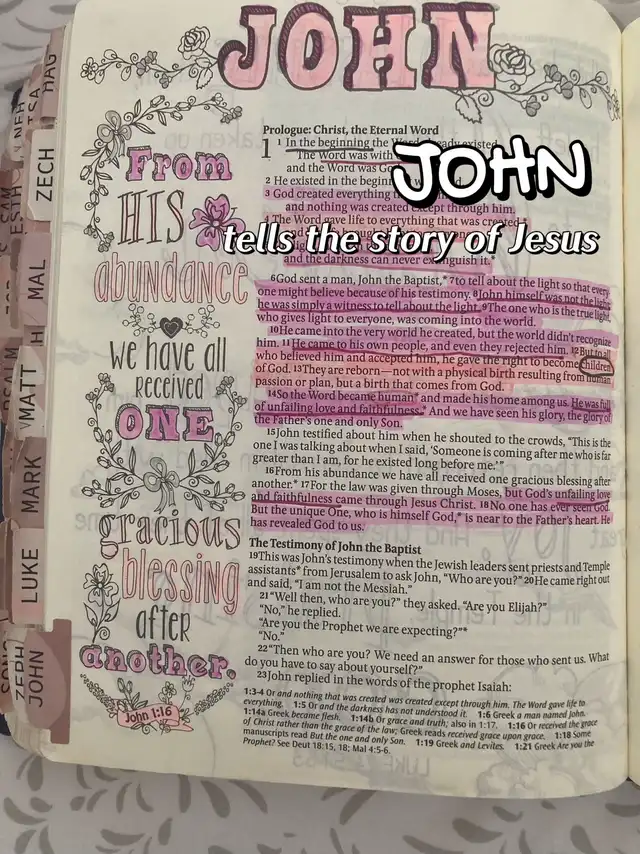 JOHN
JOHN
tells the story of Jesus
HAG
ZECH
MAL
MATT
MARK
LUKE
JOHN
ZEPH
ESTH
NEH
PSALM
From
HIS
abundance
we have all
received
ONE
gracious
blessing
after
another.
John 1:16
Prologue: Christ, the Eternal Word
1 1 In the beginning the existed
The Word was with
and the Word was
2 He existed in the
3 God created everything
and nothing was created except through him.
4 The Word gave life to everything that was created,*
and the darkness can never extinguish it.*
6 God sent a man, John the Baptist,* 7 to tell about the light so that every
one might believe because of his testimony. 8 John himself was not the light;
he was simply a witness to tell about the light. 9 The one who is the true light,
who gives light to everyone, was coming into the world.
10 He came into the very world he created, but the world didn't recognize
him. 11 He came to his own people, and even they rejected him. 12 But to all
who believed him and accepted him, he gave the right to become children
of God. 13 They are reborn—not with a physical birth resulting from human
passion or plan, but a birth that comes from God.
14 So the Word became human* and made his home among us. He was full
of unfailing love and faithfulness.* And we have seen his glory, the glory of
the Father's one and only Son.
15 John testified about him when he shouted to the crowds, "This is the
one I was talking about when I said, 'Someone is coming after me who is far
greater than I am, for he existed long before me.'"
16 From his abundance we have all received one gracious blessing after
another.* 17 For the law was given through Moses, but God's unfailing love
and faithfulness came through Jesus Christ. 18 No one has ever seen God.
But the unique One, who is himself God,* is near to the Father's heart. He
has revealed God to us.
The Testimony of John the Baptist
19 This was John's testimony when the Jewish leaders sent priests and Temple
assistants* from Jerusalem to ask John, "Who are you?" 20 He came right out
and said, "I am not the Messiah."
21 "Well then, who are you?" they asked. "Are you Elijah?"
"No," he replied.
"Are you the Prophet we are expecting?"*
"No."
22 "Then who are you? We need an answer for those who sent us. What
do you have to say about yourself?"
23 John replied in the words of the prophet Isaiah:
1:3-4 Or and nothing that was created was created except through him. The Word gave life to
everything. 1:5 Or and the darkness has not understood it. 1:6 Greek a man named John.
1:14a Greek became flesh. 1:14b Or grace and truth; also in 1:17. 1:16 Or received the grace
of Christ rather than the grace of the law; Greek reads received grace upon grace. 1:18 Some
manuscripts read But the one and only Son. 1:19 Greek and Levites. 1:21 Greek Are you the
Prophet? See Deut 18:15, 18; Mal 4:5-6.